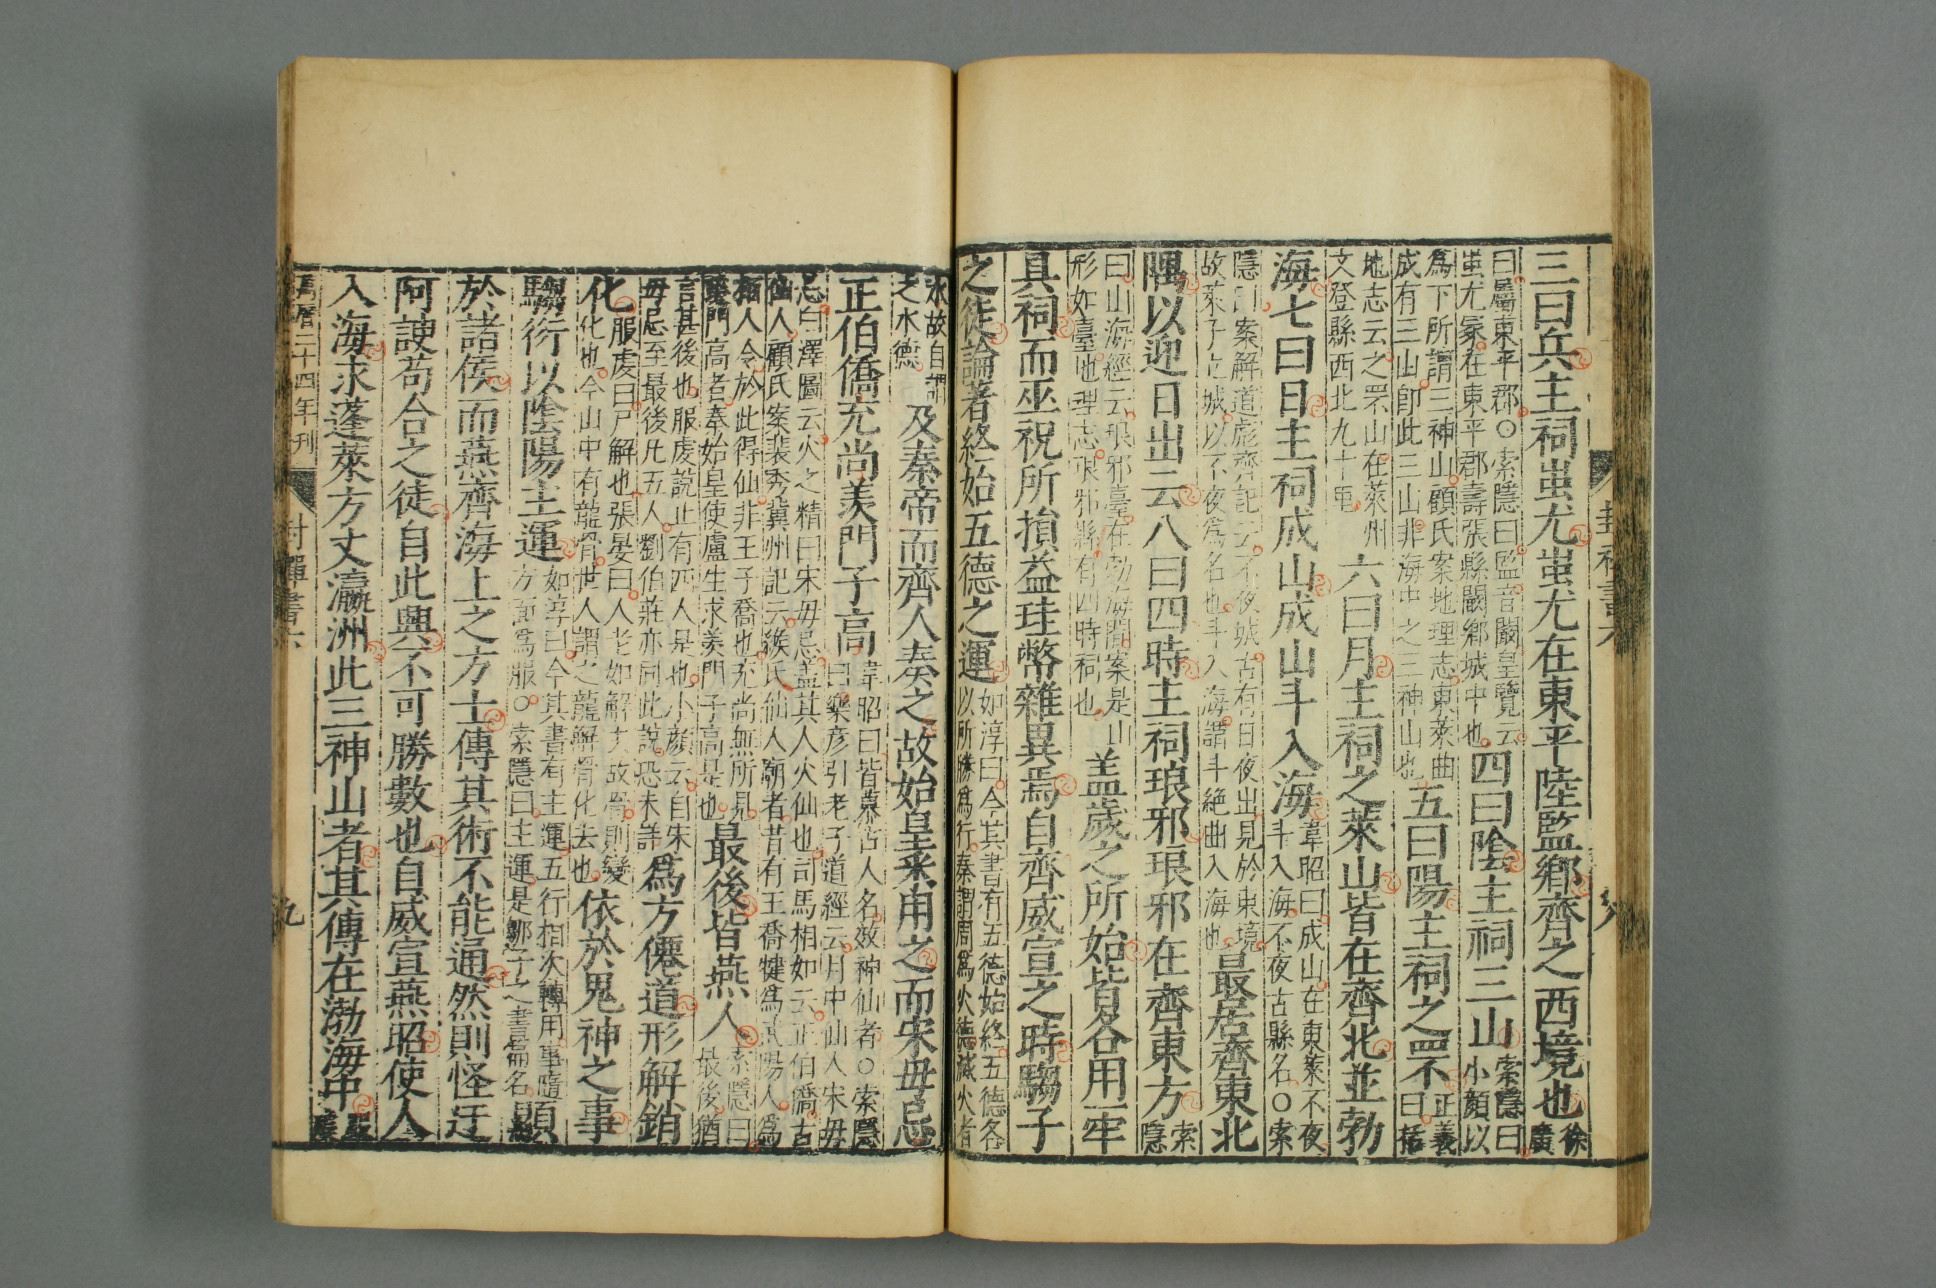 三曰兵主祠蚩尤蚩尤在東平陸監鄉齊之西境也徐廣
曰屬東平郡○索隱曰監音闞皇覽云蚩尤冢在東平郡壽張縣闞鄉城中也四曰陰主祠三山索隱曰小顏以
爲下所謂三神山顧氏案地理志東萊曲成有三山卽此三山非海中之三神山也五曰陽主祠之罘正義曰括
地志云之罘山在萊州文登縣西北九十里六曰月主祠之萊山皆在齊北並勃
海七曰日主祠成山成山斗入海韋昭曰成山在東萊不夜斗入海不夜古縣名○索
隱曰案解道彪齊記云不夜城古有日夜出見於東境故萊子立城以不夜爲名也斗入海謂斗絶曲入海也最居齊東北
隅以迎日出云八曰四時主祠琅邪琅邪在齊東方索隱
曰山海經云琅邪臺在勃海間案是山形如臺地理志琅邪縣有四時祠也蓋歲之所始皆各用一牢
具祠而巫祝所損益珪幣雜異焉自齊威宣之時騶子
之徒論著終始五德之運如淳曰今其書有五德始終五德各以所勝爲行秦謂周爲火德滅火者
封禪書六
水故自謂之水德及秦帝而齊人奏之故始皇采用之而宋毋忌
正伯僑充尚羡門子高韋昭曰皆慕古人名效神仙者○索隱曰樂彦引老子道經云月中仙人宋毋
忌白澤圖云火之精曰宋毋忌蓋其人火仙也司馬相如云正伯僑古仙人顧氏案裴秀冀州記云緱氏仙人廟者昔有王喬犍爲武陽人爲
栢人令於此得仙非王子喬也充尚無所見羡門高者秦始皇使盧生求羡門子高是也最後皆燕人索隱曰最後猶
言甚後也服虔說止有四人是也小顏云自宋毋忌至最後凡五人劉伯莊亦同此說恐未詳爲方僊道形解銷
化服虔曰尸解也張晏曰人老如解去故骨則變化也今山中有龍骨世人謂之龍解骨化去也依於鬼神之事
騶衍以陰陽主運如淳曰今其書有主運五行相次轉用事隨方靣爲服○索隱曰主運是鄒子之書篇名顯
於諸侯而燕齊海上之方士傳其術不能通然則怪迂
阿諛苟合之徒自此興不可勝數也自威宣燕昭使人
入海求蓬萊方丈瀛洲此三神山者其傳在渤海中
萬曆二十四年刊 封禪書六 九